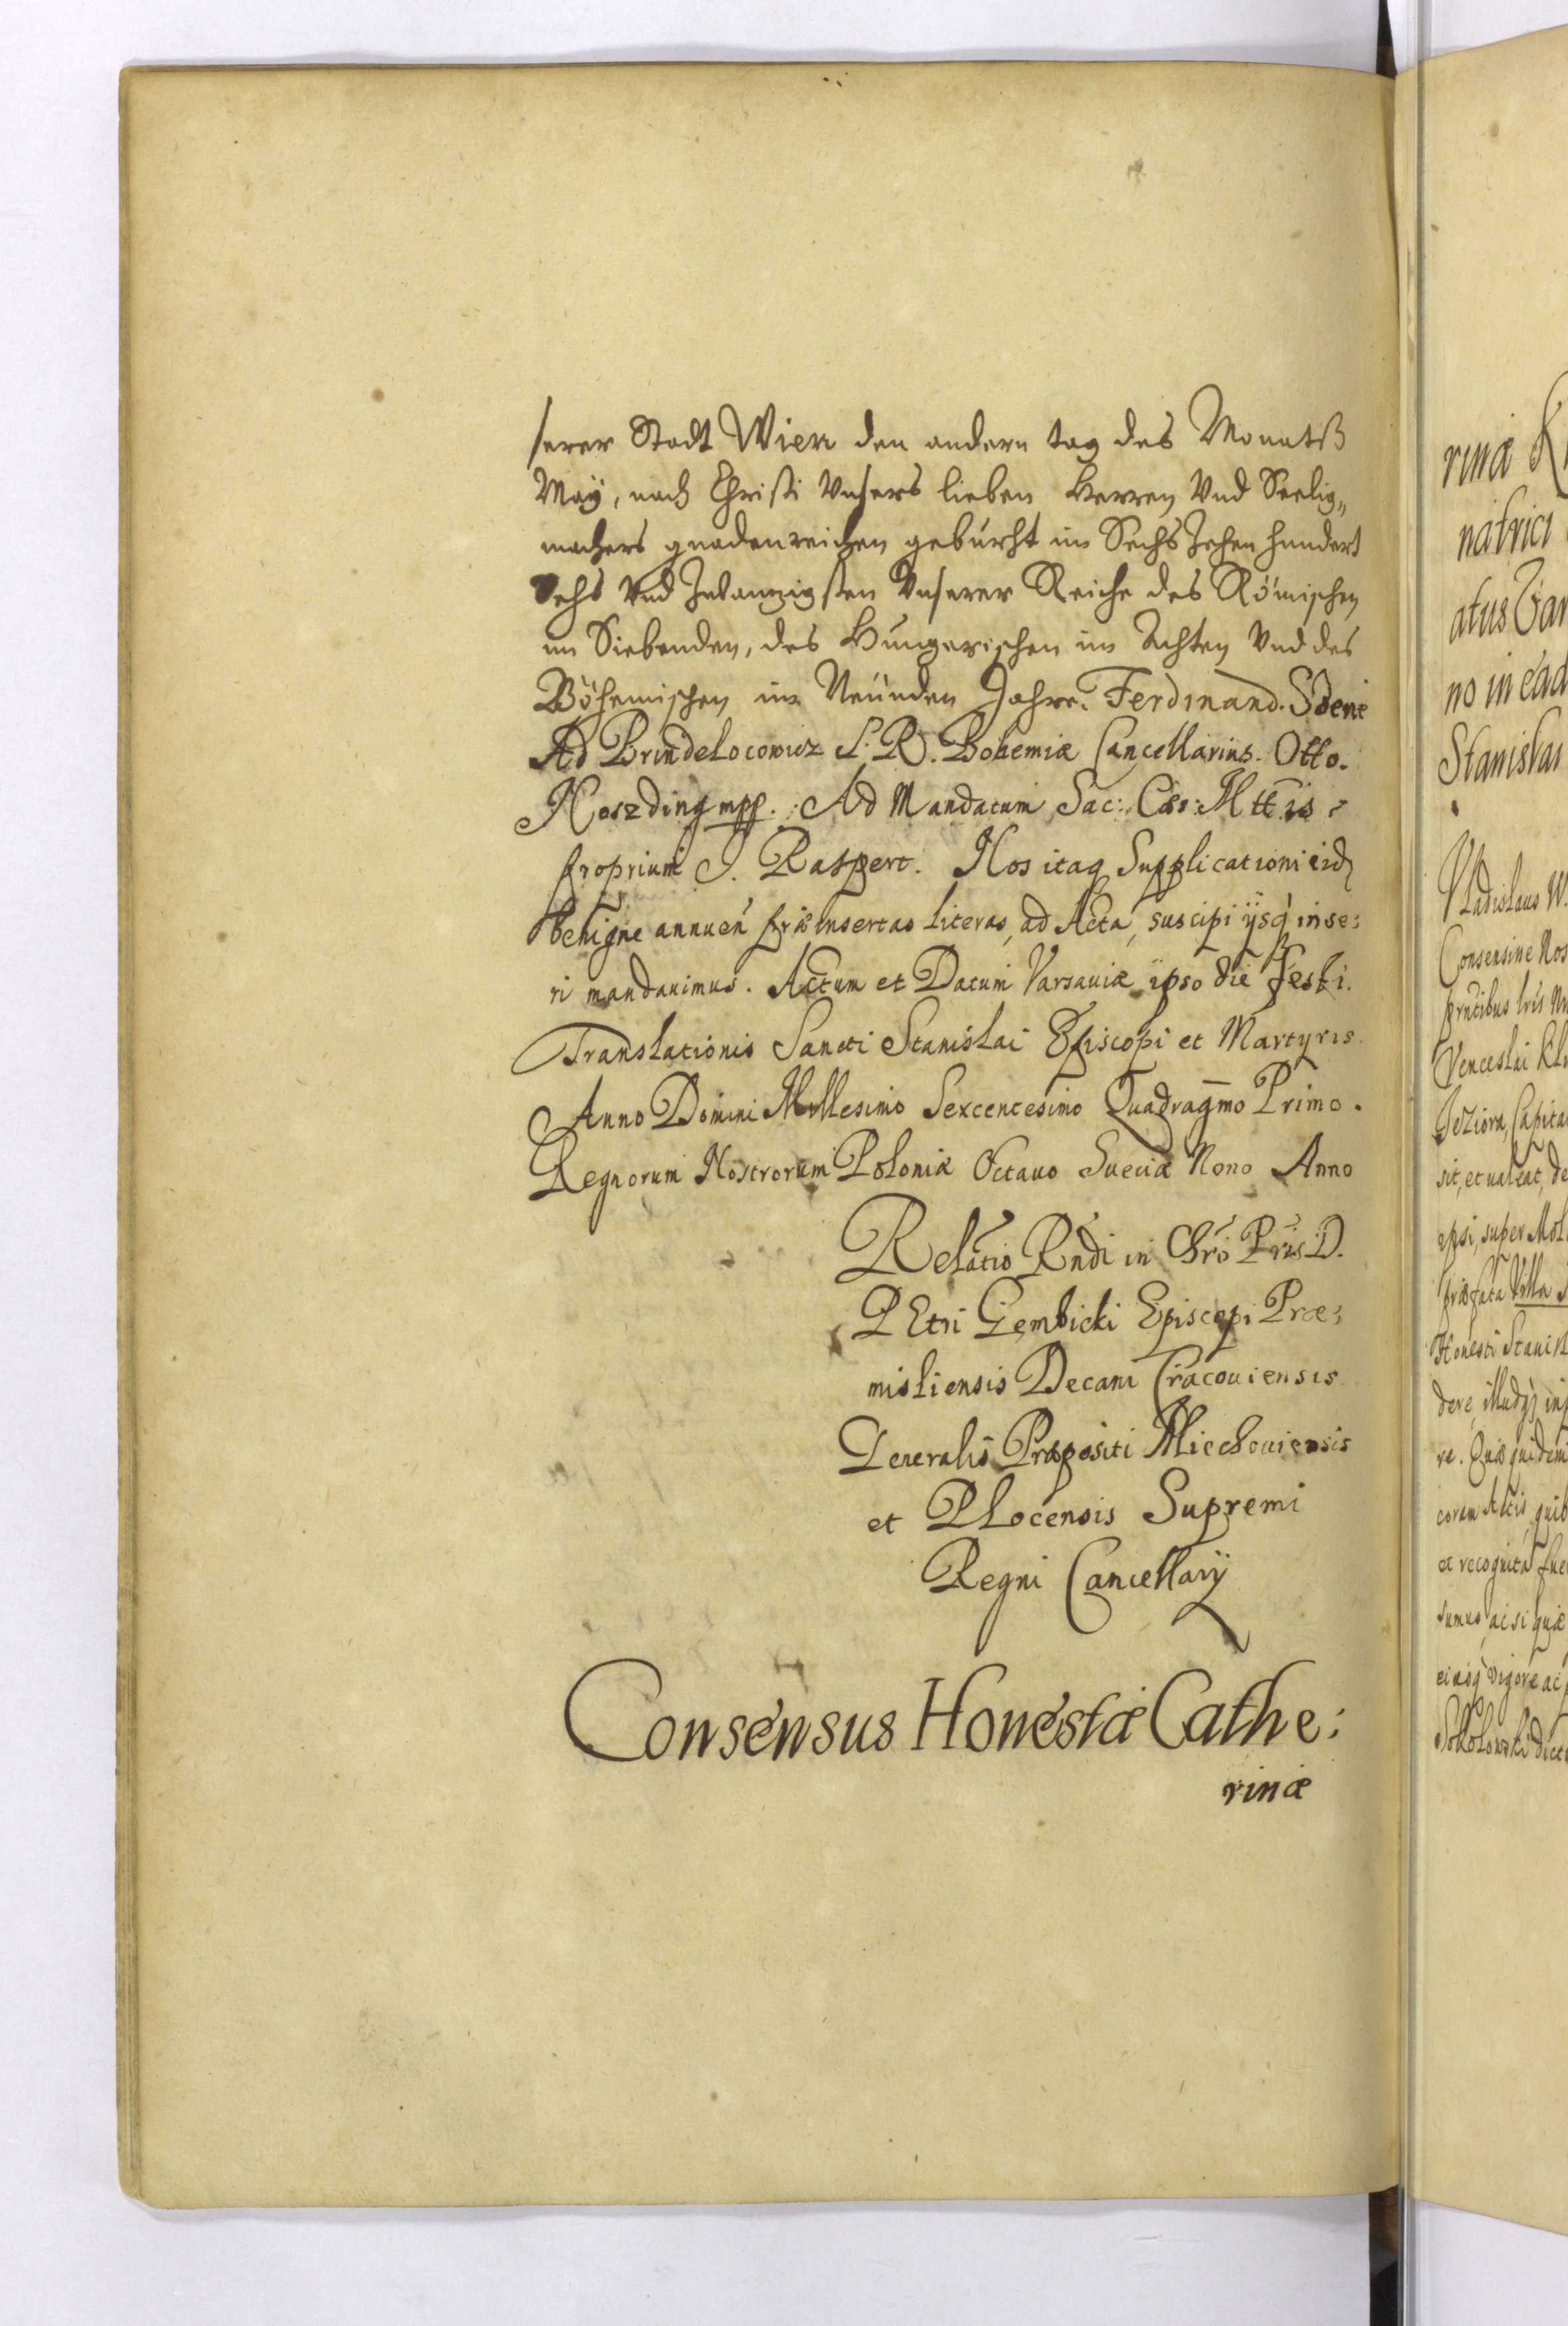 serer Stadt Wien den andern tag des Monatß
May, nach Christi Vnsers lieben Herren Vnd Seelig„
machers gnadenreichen geburht im Sechs Zehen hundert
Sechs Vnd Zwanzigsten Vnserer Reiche des Römischen
im Siebenden, des Hungerischen im Achten Vnd des
Böhemischen im Neünden Jahre. Ferdinand. Sdene
Ad Brindelocowicz S. R. Bohemiæ Cancellarius. Otto.
Noszding mpp. Ad Mandatum Sac: Cæs: Mttis
proprium J. Raspert. Nos itaq Supplicationi eid
benigne annuen præinsertas literas, ad Acta, suscipi ijsq inse:
ri mandauimus. Actum et Datum Varsauiæ ipso die festi
Translationis Sancti Stanislai Episcopi et Martyris
Anno Domini Millesimo Sexcentesimo Quadragmo Primo.
Regnorum Nostrorum Poloniæ Octauo Sueciæ Nono Anno
Relatio Rndi in Chro Pris D.
PEtri Gembicki Episcopi Præ:
misliensis Decani Cracouiensis
Generalis Præpositi Miechouiensis
et Plocensis Supremi
Regni Cancellarij
Consensus Honestæ Cathe:
rinæ
rinæ
natrici
atus
no in ead
Stanislai
Vladislaus
Consensine Nos
prntibus lris
Venceslai
Jeziora, Capita
sit, et ualeat, de
ipsi, super
præfata Villa
Honesti Stanis
dere, illudq
re. Quæ quidem
coram Actis, quib
et recognita fue
sumus, ac si quæ
eiusq vigore ac
Sokolowski dict